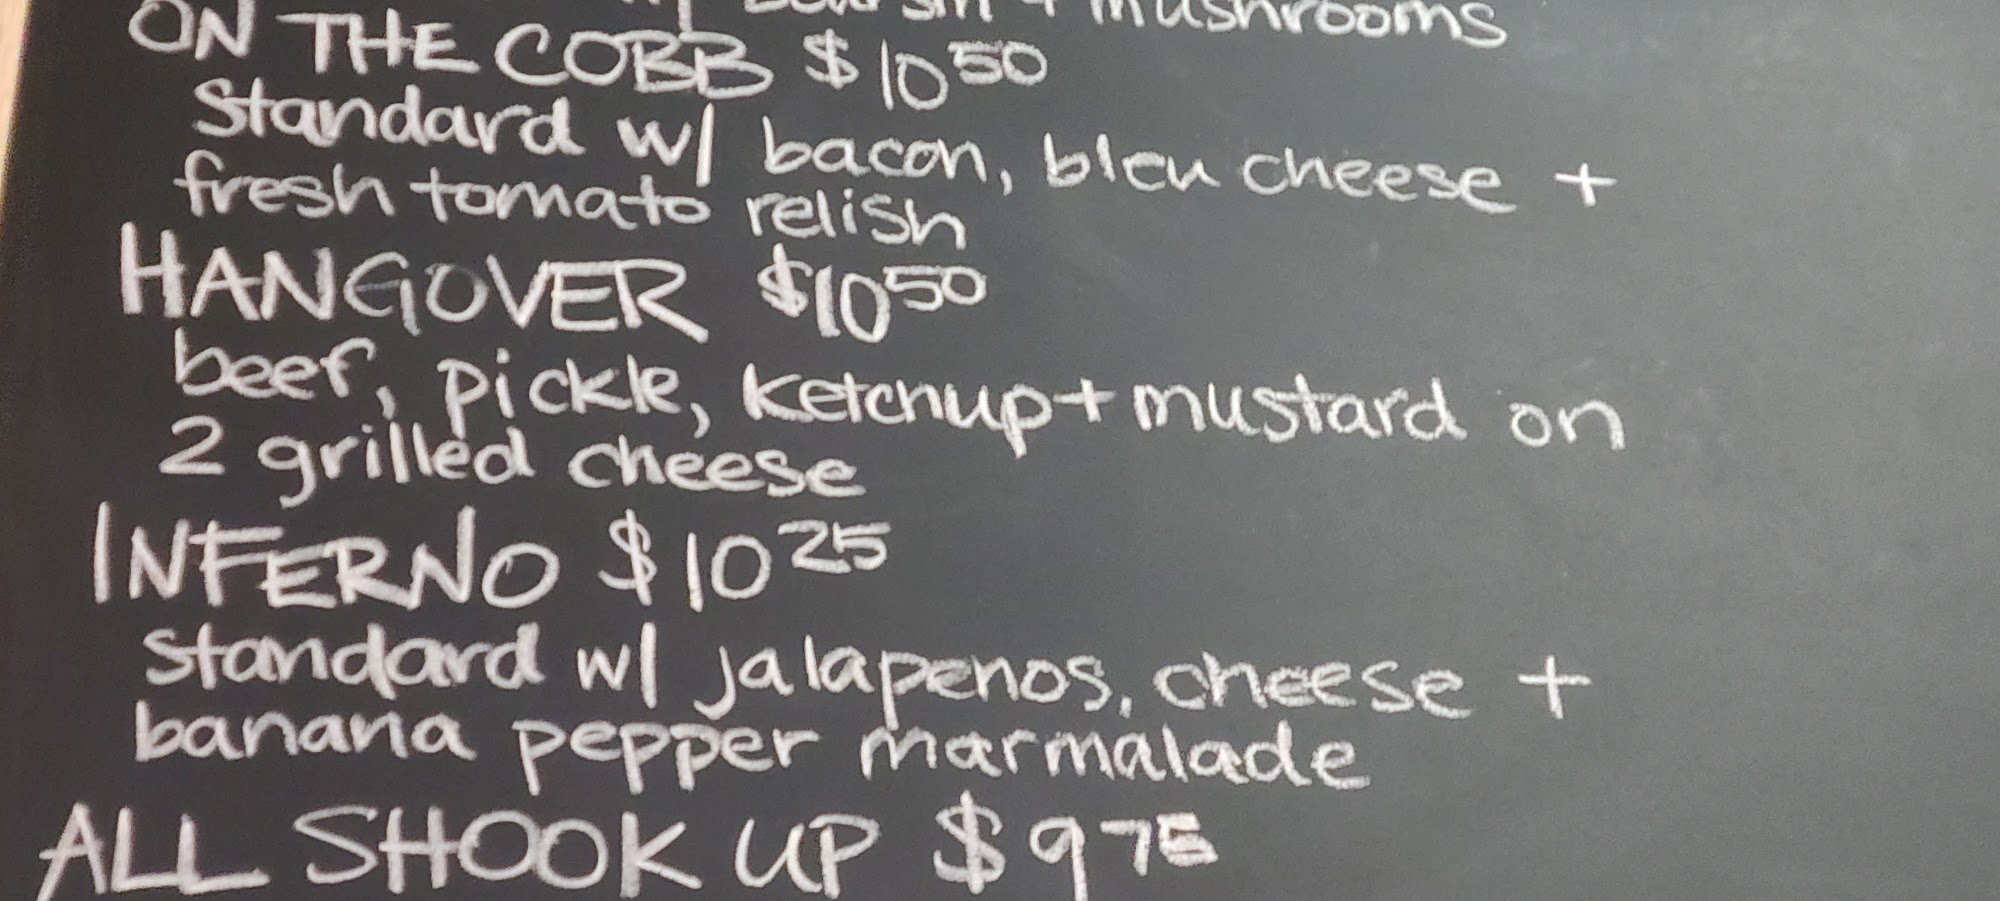 + mushrooms
ON THE COBB $10 50
Standard w/ bacon, bleu cheese +
fresh tomato relish
HANGOVER $10 50
beef, pickle, ketchup + mustard on
2 grilled cheese
INFERNO $10 25
standard w/ jalapenos, cheese +
banana pepper marmalade
ALL SHOOK UP $9 75